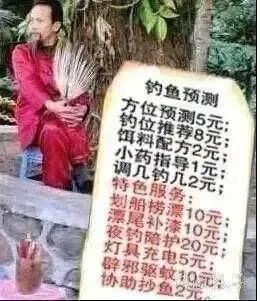 钓鱼预测
方位预测5元;
钓位推荐8元;
饵料配方2元;
小药指导1元;
调几钓几2元;
特色服务:
划船捞漂10元;
漂尾补漆10元;
夜钓陪护20元;
灯具充电5元;
辟邪驱蚊10元;
协助抄鱼2元;